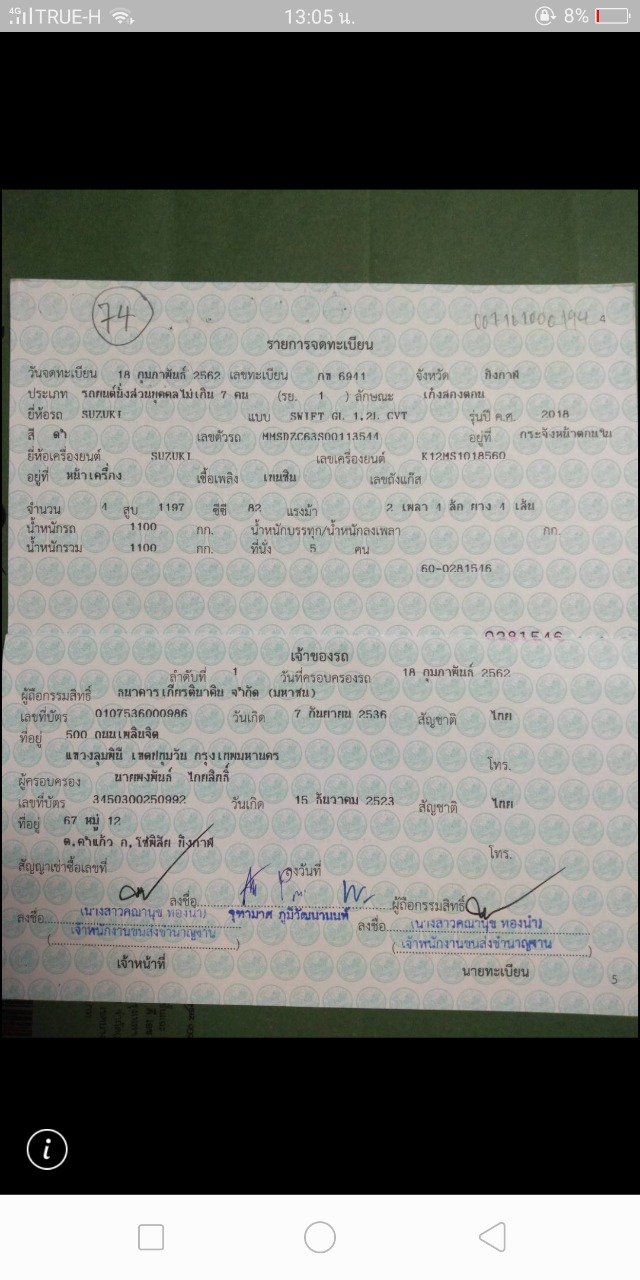 4G TRUE-H 13:05 น. 8%
74
รายการจดทะเบียน
วันจดทะเบียน 18 กุมภาพันธ์ 2562 เลขทะเบียน กข 6941 จังหวัด บึงกาฬ
ประเภท รถยนต์นั่งส่วนบุคคลไม่เกิน 7 คน (รย. 1 ) ลักษณะ เก๋งสองตอน
ยี่ห้อรถ SUZUKI แบบ SWIFT GL 1.2L CVT รุ่นปี ค.ศ. 2018
สี ดำ เลขตัวรถ MMSDZC63S00113544 อยู่ที่ กระจังหน้าตอนใน
ยี่ห้อเครื่องยนต์ SUZUKI เลขเครื่องยนต์ K12MS1018560
อยู่ที่ หน้าเครื่อง เชื้อเพลิง เบนซิน เลขถังแก๊ส
จำนวน 4 สูบ 1197 ซีซี 82 แรงม้า 2 เพลา 4 ล้อ ยาง 4 เส้น
น้ำหนักรถ 1100 กก. น้ำหนักบรรทุก/น้ำหนักลงเพลา กก.
น้ำหนักรวม 1100 กก. ที่นั่ง 5 คน
60-0281546
0281546
เจ้าของรถ
ลำดับที่ 1 วันที่ครอบครองรถ 18 กุมภาพันธ์ 2562
ผู้ถือกรรมสิทธิ์ ธนาคารเกียรตินาคิน จำกัด (มหาชน)
เลขที่บัตร 0107536000986 วันเกิด 7 กันยายน 2536 สัญชาติ ไทย
ที่อยู่ 500 ถนนเพลินจิต
แขวงลุมพินี เขตปทุมวัน กรุงเทพมหานคร โทร.
ผู้ครอบครอง นายพงพันธ์ ไทยสิทธิ์
เลขที่บัตร 3450300250992 วันเกิด 15 ธันวาคม 2523 สัญชาติ ไทย
ที่อยู่ 67 หมู่ 12
ต.คำแก้ว อ.โซ่พิสัย บึงกาฬ โทร.
สัญญาเช่าซื้อเลขที่ ลงวันที่
ลงชื่อ ผู้ถือกรรมสิทธิ์
ลงชื่อ (นางสาวคณานุช ทองนำ) จุฑามาศ ภูมิวัฒนานนท์ ลงชื่อ (นางสาวคณานุช ทองนำ)
( เจ้าพนักงานขนส่งชำนาญงาน ) ( เจ้าพนักงานขนส่งชำนาญงาน )
เจ้าหน้าที่ นายทะเบียน
5